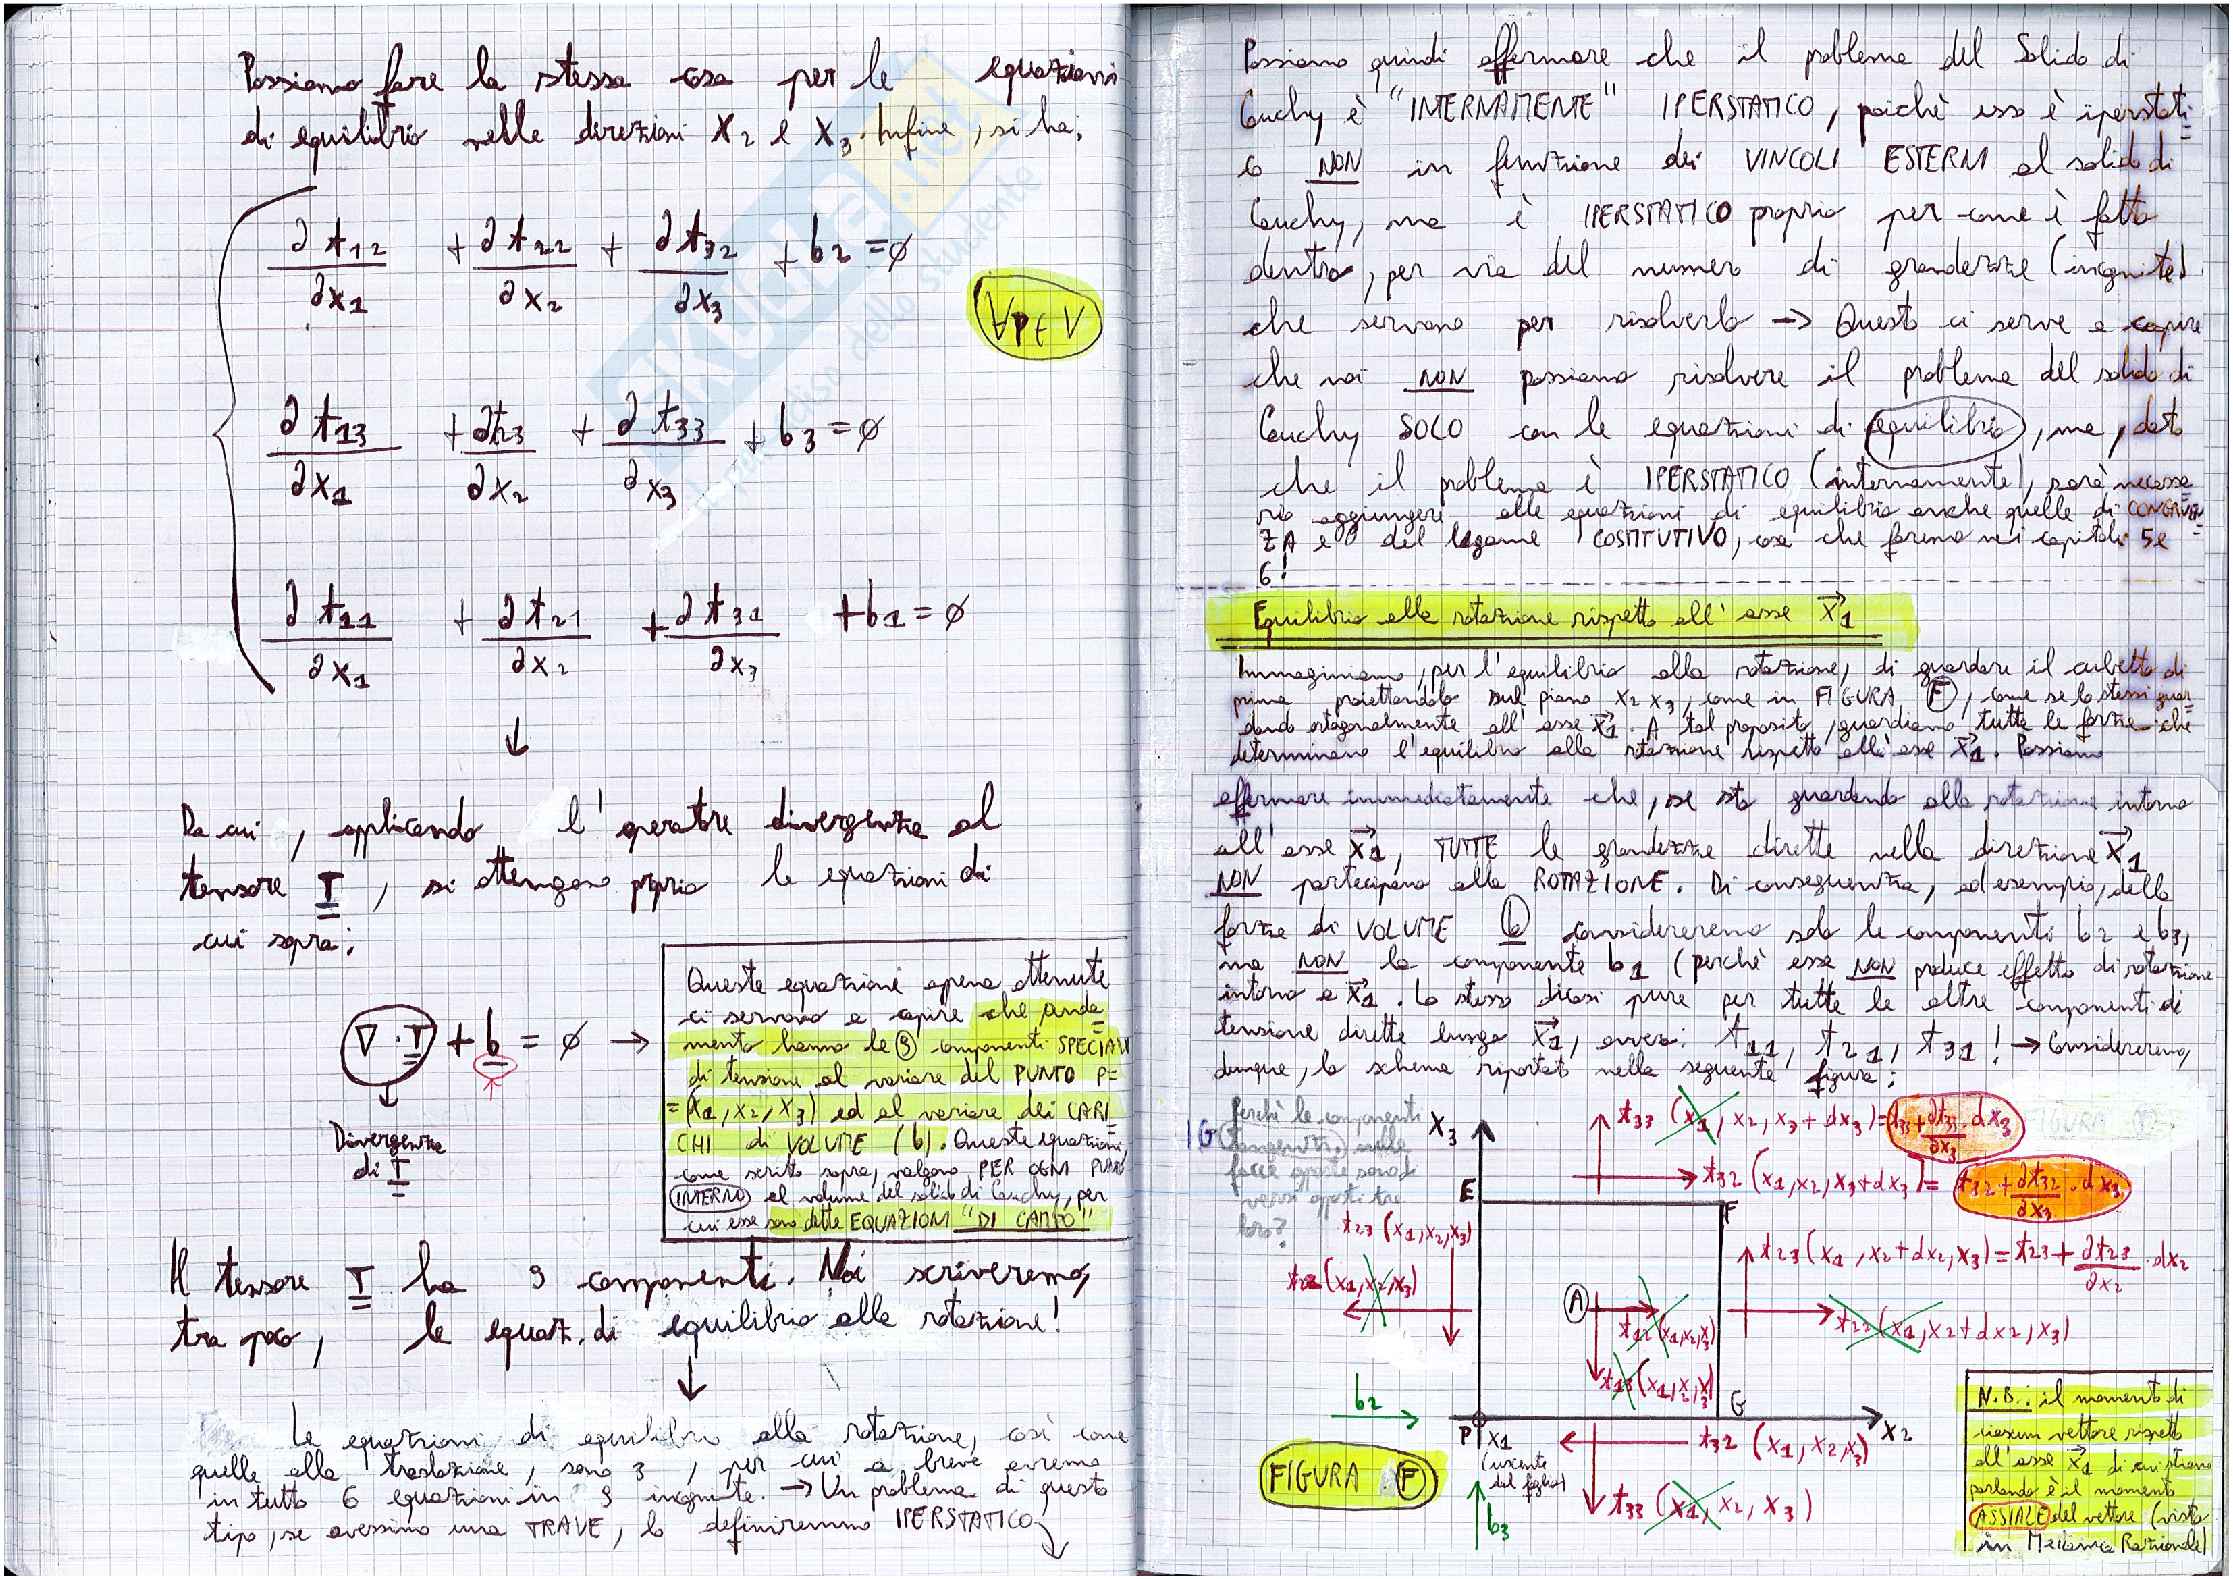 Possiamo fare la stessa cosa per le equazioni
di equilibrio nelle direzioni x2 e x3. Infine, si ha:
∂t12/∂x1 + ∂t22/∂x2 + ∂t32/∂x3 + b2 = ∅
∀P∈V
∂t13/∂x1 + ∂t23/∂x2 + ∂t33/∂x3 + b3 = ∅
∂t11/∂x1 + ∂t21/∂x2 + ∂t31/∂x3 + b1 = ∅
↓
Da cui, applicando l'operatore divergenza al
tensore T, si ottengono proprio le equazioni di
cui sopra:
∇·T + b = ∅ →
Divergenza
di T
Queste equazioni appena ottenute
ci servono a capire che anda=
mento hanno le 9 componenti SPECIALI
di tensione al variare del PUNTO P=
=(x1, x2, x3) ed al variare dei CARI
CHI di VOLUME (b). Queste equazioni,
come scritto sopra, valgono PER OGNI PUNTO
INTERNO al volume del solido di Cauchy, per
cui esse sono dette EQUAZIONI "DI CAMPO"
Il tensore T ha 9 componenti. Noi scriveremo,
tra poco, le equaz. di equilibrio alla rotazione!
↓
Le equazioni di equilibrio alla rotazione, così come
quelle alla traslazione, sono 3, per cui a breve avremo
in tutto 6 equazioni in 9 incognite. → Un problema di questo
tipo, se avessimo una TRAVE, lo definiremmo IPERSTATICO
Possiamo quindi affermare che il problema del Solido di
Cauchy è "INTERNAMENTE" IPERSTATICO, poichè esso è iperstati=
co NON in funzione dei VINCOLI ESTERNI al solido di
Cauchy, ma è IPERSTATICO proprio per come è fatto
dentro, per via del numero di grandezze (incognite)
che servono per risolverlo → Questo ci serve a capire
che noi NON possiamo risolvere il problema del solido di
Cauchy SOLO con le equazioni di equilibrio, ma, dato
che il problema è IPERSTATICO (internamente), sarà necessa=
rio aggiungere alle equazioni di equilibrio anche quelle di CONGRUEN=
ZA e del legame COSTITUTIVO, cosa che faremo nei capitoli 5 e
6!
Equilibrio alla rotazione rispetto all'asse x1
Immaginiamo, per l'equilibrio alla rotazione, di guardare il cubetto di
prima proiettandolo sul piano x2 x3, come in FIGURA F, come se lo stessi guar=
dando ortogonalmente all'asse x1. A tal proposito, guardiamo tutte le forze che
determinano l'equilibrio alla rotazione rispetto all'asse x1. Possiamo
affermare immediatamente che, se sto guardando alla rotazione intorno
all'asse x1, TUTTE le grandezze dirette nella direzione x1
NON partecipano alla ROTAZIONE. Di conseguenza, ad esempio, delle
forze di VOLUME b considereremo solo le componenti b2 e b3,
ma NON la componente b1 (perchè essa NON produce effetto di rotazione
intorno a x1. Lo stesso dicasi pure per tutte le altre componenti di
tensione dirette lungo x1, ovvero: t11, t21, t31! → Considereremo,
dunque, lo schema riportato nella seguente figura:
Perchè le componenti
tangenziali sulle
facce opposte sono di
versi opposti tra
loro?
x3
t33 (x1, x2, x3+dx3) = t33 + ∂t33/∂x3 · dx3
t32 (x1, x2, x3+dx3) = t32 + ∂t32/∂x3 · dx3
E
F
t23 (x1, x2, x3)
t22 (x1, x2, x3)
t23 (x1, x2+dx2, x3) = t23 + ∂t23/∂x2 · dx2
A
t12 (x1, x2, x3)
t22 (x1, x2+dx2, x3)
t13 (x1, x2, x3)
b2
G
P x1
(uscente
dal foglio)
x2
t32 (x1, x2, x3)
FIGURA F
t33 (x1, x2, x3)
b3
N.B.: il momento di
ciascun vettore rispetto
all'asse x1 di cui stiamo
parlando è il momento
ASSIALE del vettore (visto
in Meccanica Razionale)